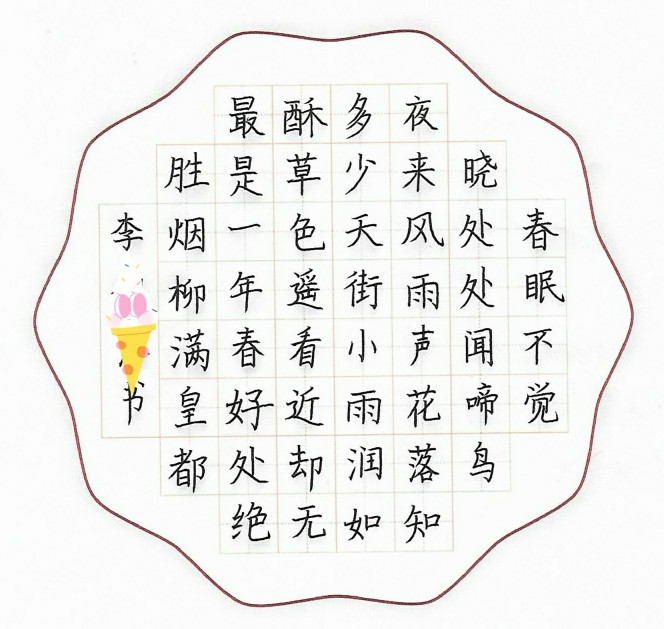 春眠不觉
晓处处闻啼鸟
夜来风雨声花落知
多少天街小雨润如
酥草色遥看近却无
最是一年春好处绝
胜烟柳满皇都
李书